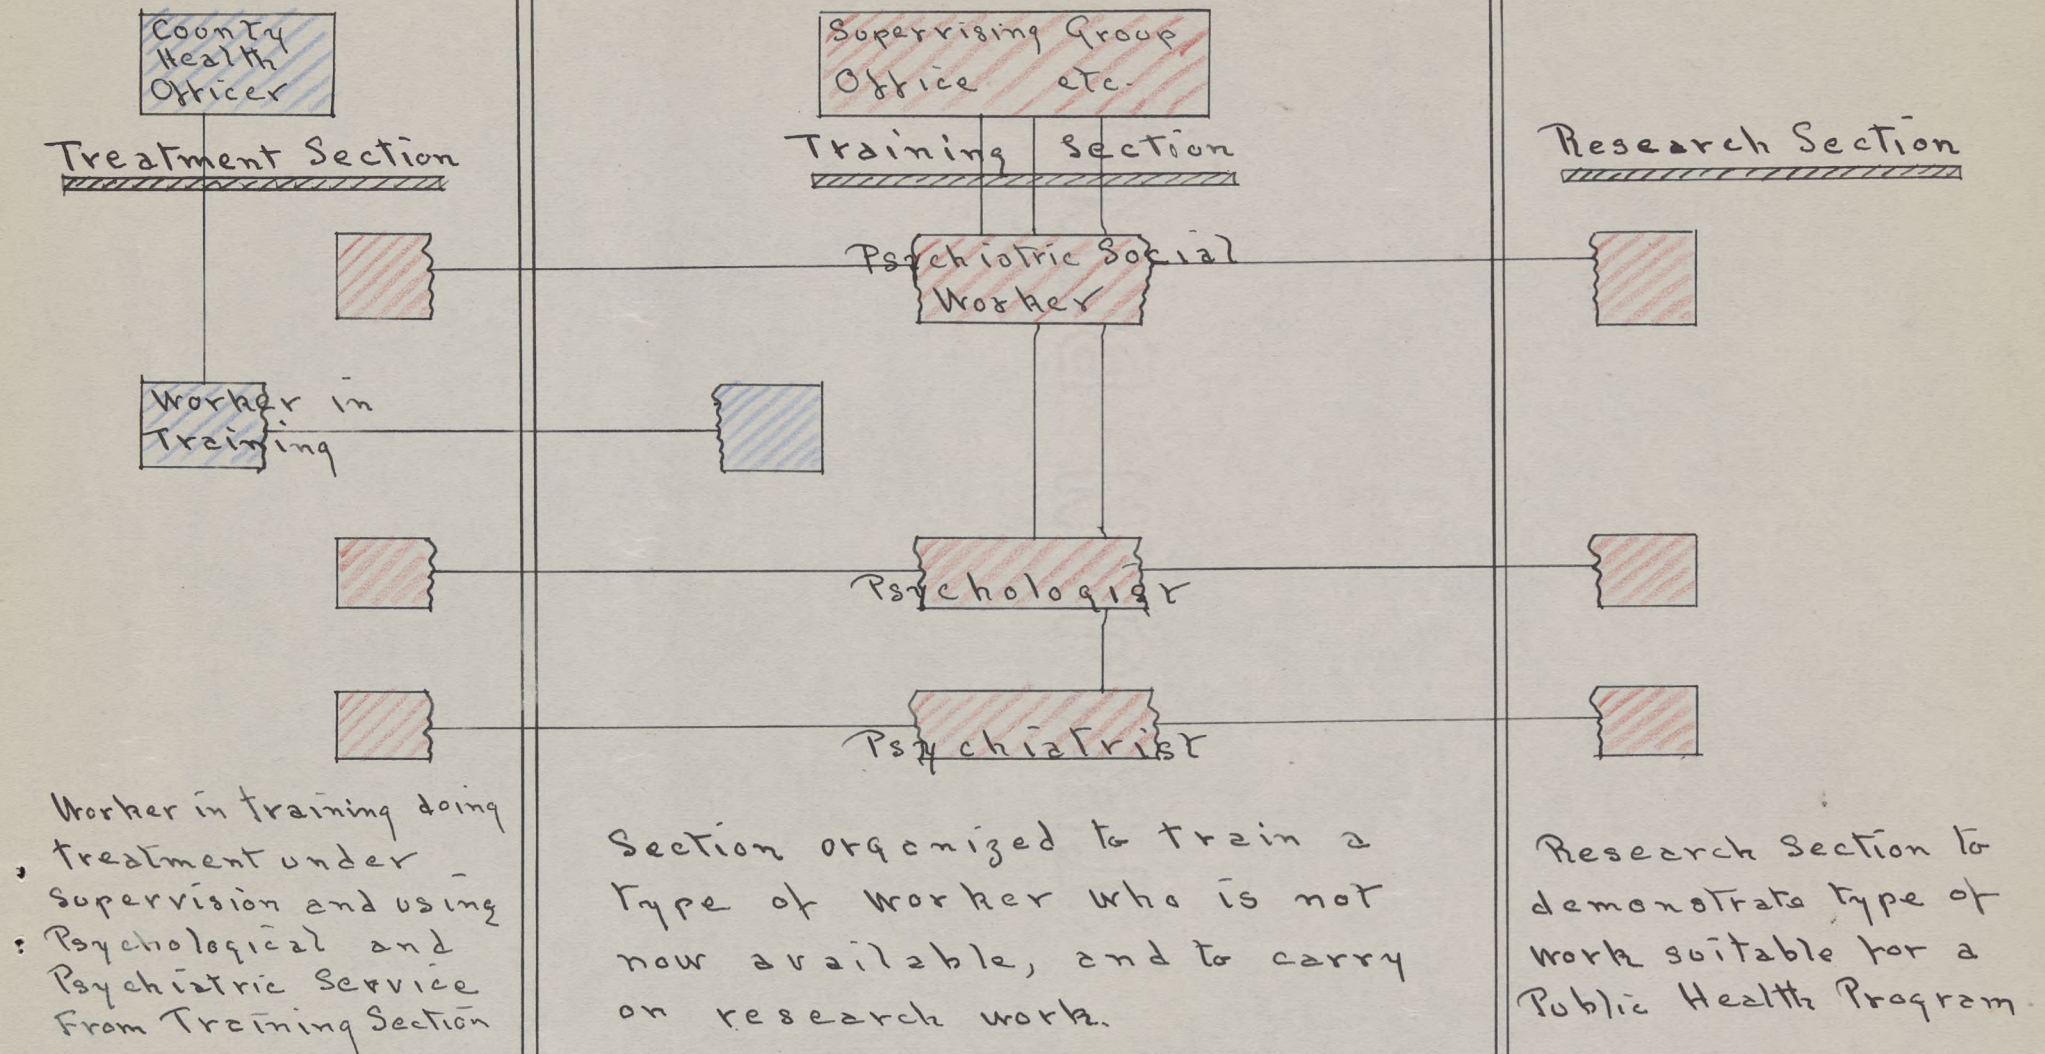 County
Health
Officer
Treatment Section
Worker in
Training
Worker in training doing
treatment under
supervision and using
Psychological and
Psychiatric Service
From Training Section
Supervising Group
Office etc.
Training Section
Psychiatric Social
Worker
Psychologist
Psychiatrist
Section organized to train a
type of worker who is not
now available, and to carry
on research work.
Research Section
Research Section to
demonstrate type of
work suitable for a
Public Health Program